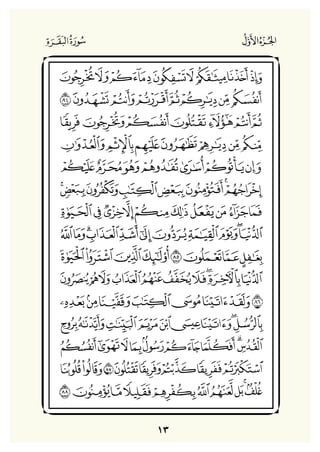 الجُزْءُ الأَوَّلُ
سُورَةُ البَقَرَةِ
وَإِذْ أَخَذْنَا مِيثَٰقَكُمْ لَا تَسْفِكُونَ دِمَآءَكُمْ وَلَا تُخْرِجُونَ
أَنفُسَكُم مِّن دِيَٰرِكُمْ ثُمَّ أَقْرَرْتُمْ وَأَنتُمْ تَشْهَدُونَ ٨٤
ثُمَّ أَنتُمْ هَٰٓؤُلَآءِ تَقْتُلُونَ أَنفُسَكُمْ وَتُخْرِجُونَ فَرِيقًا
مِّنكُم مِّن دِيَٰرِهِمْ تَظَٰهَرُونَ عَلَيْهِم بِٱلْإِثْمِ وَٱلْعُدْوَٰنِ
وَإِن يَأْتُوكُمْ أُسَٰرَىٰ تُفَٰدُوهُمْ وَهُوَ مُحَرَّمٌ عَلَيْكُمْ
إِخْرَاجُهُمْ ۚ أَفَتُؤْمِنُونَ بِبَعْضِ ٱلْكِتَٰبِ وَتَكْفُرُونَ بِبَعْضٍ ۚ
فَمَا جَزَآءُ مَن يَفْعَلُ ذَٰلِكَ مِنكُمْ إِلَّا خِزْيٌ فِي ٱلْحَيَوٰةِ
ٱلدُّنْيَا ۖ وَيَوْمَ ٱلْقِيَٰمَةِ يُرَدُّونَ إِلَىٰٓ أَشَدِّ ٱلْعَذَابِ ۗ وَمَا ٱللَّهُ
بِغَٰفِلٍ عَمَّا تَعْمَلُونَ ٨٥ أُو۟لَٰٓئِكَ ٱلَّذِينَ ٱشْتَرَوُا۟ ٱلْحَيَوٰةَ
ٱلدُّنْيَا بِٱلْءَاخِرَةِ ۖ فَلَا يُخَفَّفُ عَنْهُمُ ٱلْعَذَابُ وَلَا هُمْ يُنصَرُونَ
٨٦ وَلَقَدْ ءَاتَيْنَا مُوسَى ٱلْكِتَٰبَ وَقَفَّيْنَا مِنۢ بَعْدِهِۦ
بِٱلرُّسُلِ ۖ وَءَاتَيْنَا عِيسَى ٱبْنَ مَرْيَمَ ٱلْبَيِّنَٰتِ وَأَيَّدْنَٰهُ بِرُوحِ
ٱلْقُدُسِ ۗ أَفَكُلَّمَا جَآءَكُمْ رَسُولٌۢ بِمَا لَا تَهْوَىٰٓ أَنفُسُكُمُ
ٱسْتَكْبَرْتُمْ فَفَرِيقًا كَذَّبْتُمْ وَفَرِيقًا تَقْتُلُونَ ٨٧ وَقَالُوا۟ قُلُوبُنَا
غُلْفٌۢ ۚ بَل لَّعَنَهُمُ ٱللَّهُ بِكُفْرِهِمْ فَقَلِيلًا مَّا يُؤْمِنُونَ ٨٨
١٣